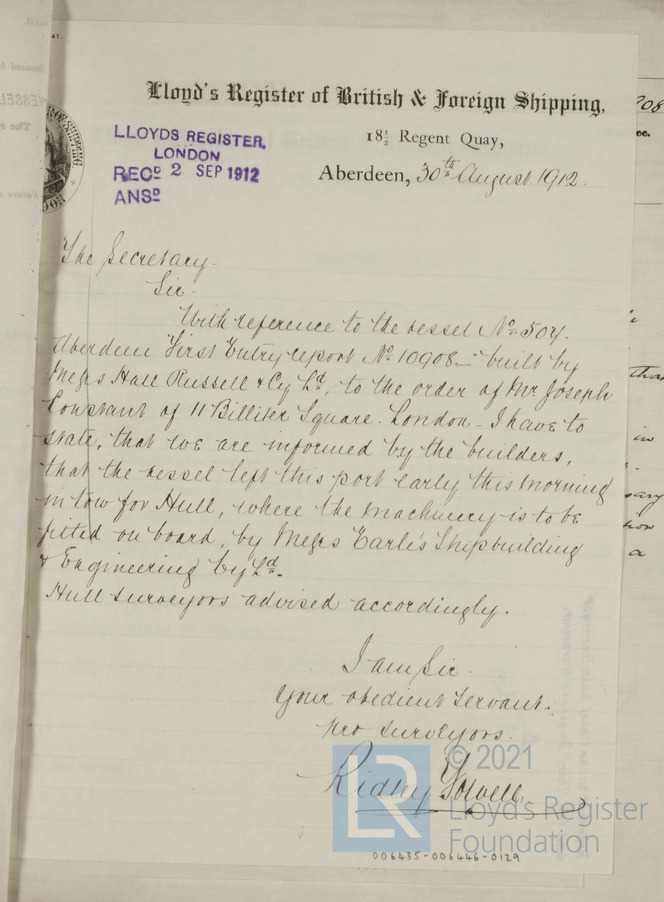 Lloyd's Register of British & Foreign Shipping,
18½ Regent Quay,
Aberdeen, 30th August 1912
LLOYDS REGISTER,
LONDON
RECD 2 SEP 1912
ANSD
The Secretary
Sir
With reference to the vessel No 504.
Aberdeen First Entry report No 10908 - built by
Messrs Hall Russell & Cy Ld, to the order of Mr Joseph
Constant of 11 Billiter Square. London - I have to
state, that we are informed by the builders,
that the vessel left this port early this morning
in tow for Hull, where the machinery is to be
fitted on board, by Messrs Earle's Shipbuilding
& Engineering Cy Ld.
Hull surveyors advised accordingly.
I am Sir
Your obedient Servant.
pro surveyors.
Ridley
LR
© 2021
Lloyd's Register
Foundation
006435-006446-0129